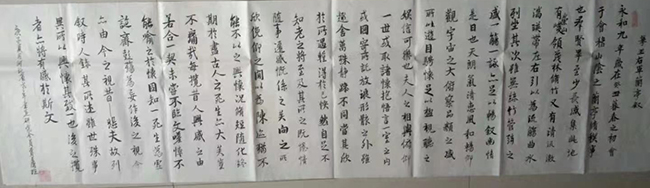 王右軍蘭亭叙
永和九年歲在癸丑暮春之初會
于會稽山陰之蘭亭脩稧事
也羣賢畢至少長咸集此地
有崇山峻領茂林脩竹又有清流激
湍暎帶左右引以為流觴曲水
列坐其次雖無絲竹管弦之
盛一觴一詠亦足以暢叙幽情
是日也天朗氣清惠風和暢仰
觀宇宙之大俯察品類之盛
所以遊目騁懷足以極視聽之
娛信可樂也夫人之相與俯仰
一世或取諸懷抱悟言一室之內
或因寄所託放浪形骸之外雖
趣舍萬殊靜躁不同當其欣
於所遇暫得於己快然自足不
知老之將至及其所之既惓情
隨事遷感慨係之矣向之所
欣俛仰之間以為陳迹猶不
能不以之興懷況脩短隨化終
期於盡古人云死生亦大矣豈
不痛哉每攬昔人興感之由
若合一契未嘗不臨文嗟悼不
能喻之於懷固知一死生為虛
誕齊彭殤為妄作後之視今
亦由今之視昔悲夫故列
叙時人錄其所述雖世殊事
異所以興懷其致一也後之攬
者亦將有感於斯文